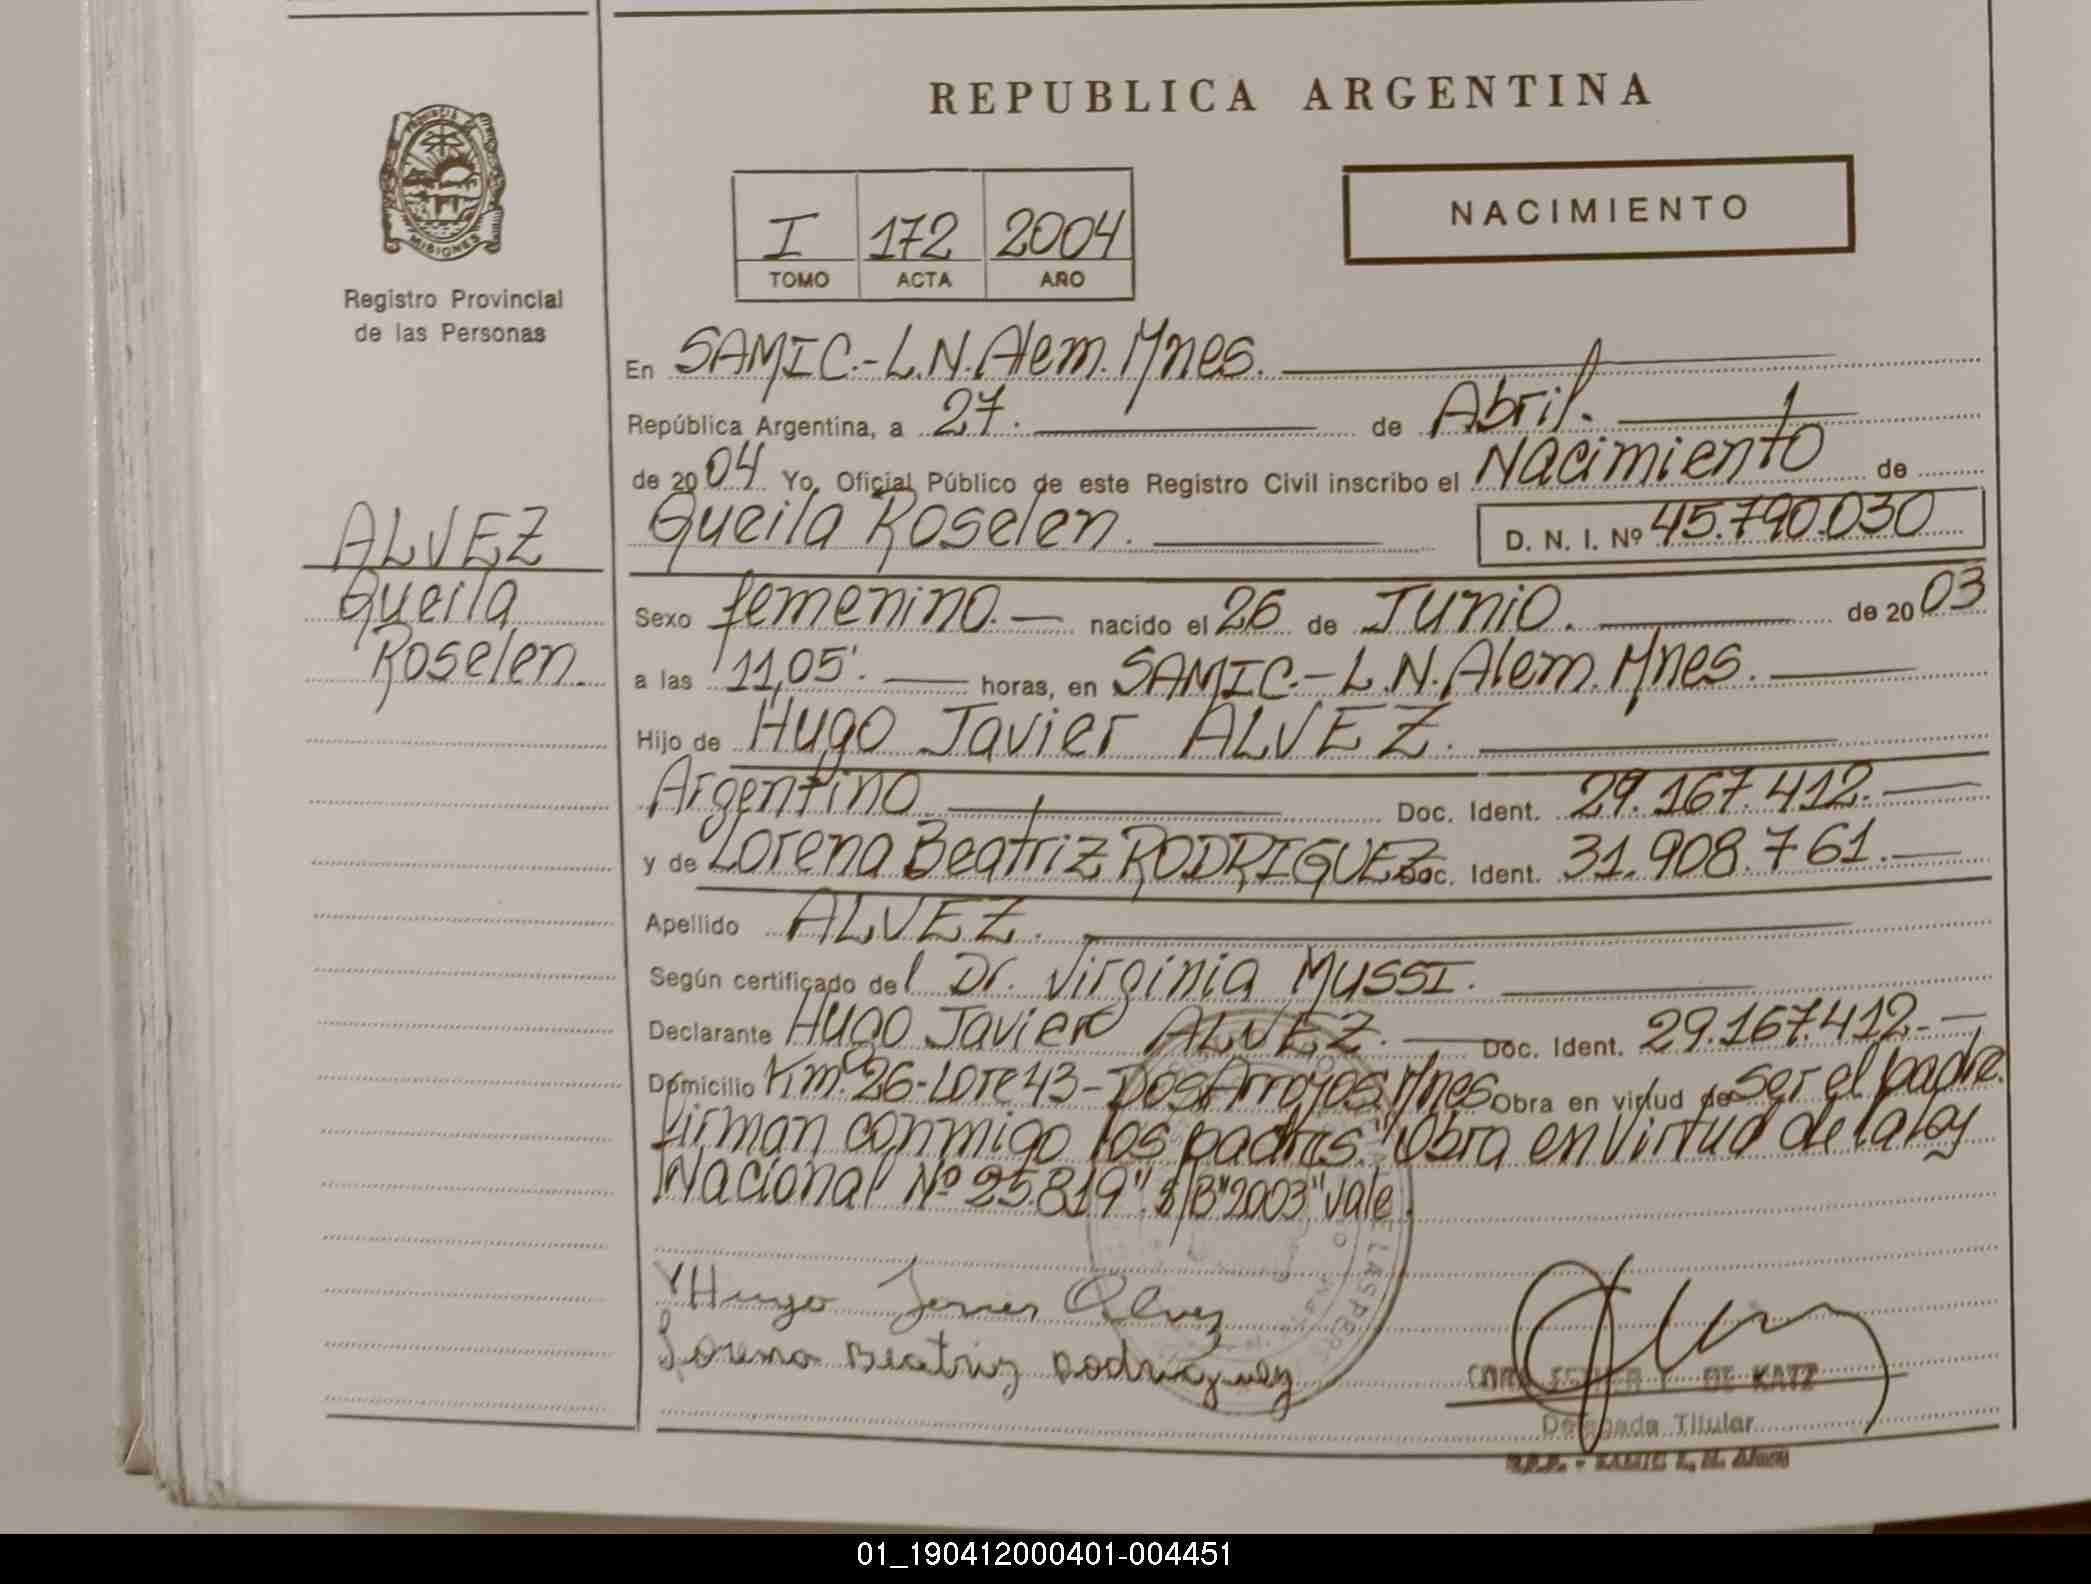 REPUBLICA ARGENTINA
PROVINCIA DE
MISIONES
Registro Provincial
de las Personas
NACIMIENTO
I 172 2004
TOMO ACTA AÑO
En SAMIC.-L.N.Alem.Mnes.
República Argentina, a 27. de Abril.
de 2004 Yo, Oficial Público de este Registro Civil inscribo el Nacimiento de
Queila Roselen. D. N. I. Nº 45.790.030
ALVEZ
Queila
Roselen.
Sexo femenino. nacido el 26 de Junio. de 2003
a las 11,05'. horas, en SAMIC.-L.N.Alem.Mnes.
Hijo de Hugo Javier ALVEZ.
Argentino Doc. Ident. 29.167.412.
y de Lorena Beatriz RODRIGUEZ Doc. Ident. 31.908.761.
Apellido ALVEZ.
Según certificado del Dr. Virginia MUSSI.
Declarante Hugo Javier ALVEZ. Doc. Ident. 29.167.412.
Domicilio Km.26-Lote 43-Dos Arroyos Mnes Obra en virtud de ser el padre.
firman conmigo los padres. "Obra en Virtud de la Ley
Nacional Nº 25.819" S/B "2003" Vale.
Hugo Javier Alvez
Lorena Beatriz Rodriguez
DE KATZ
Delegada Titular
R.P.P. - SAMIC L. N. Alem
01_190412000401-004451